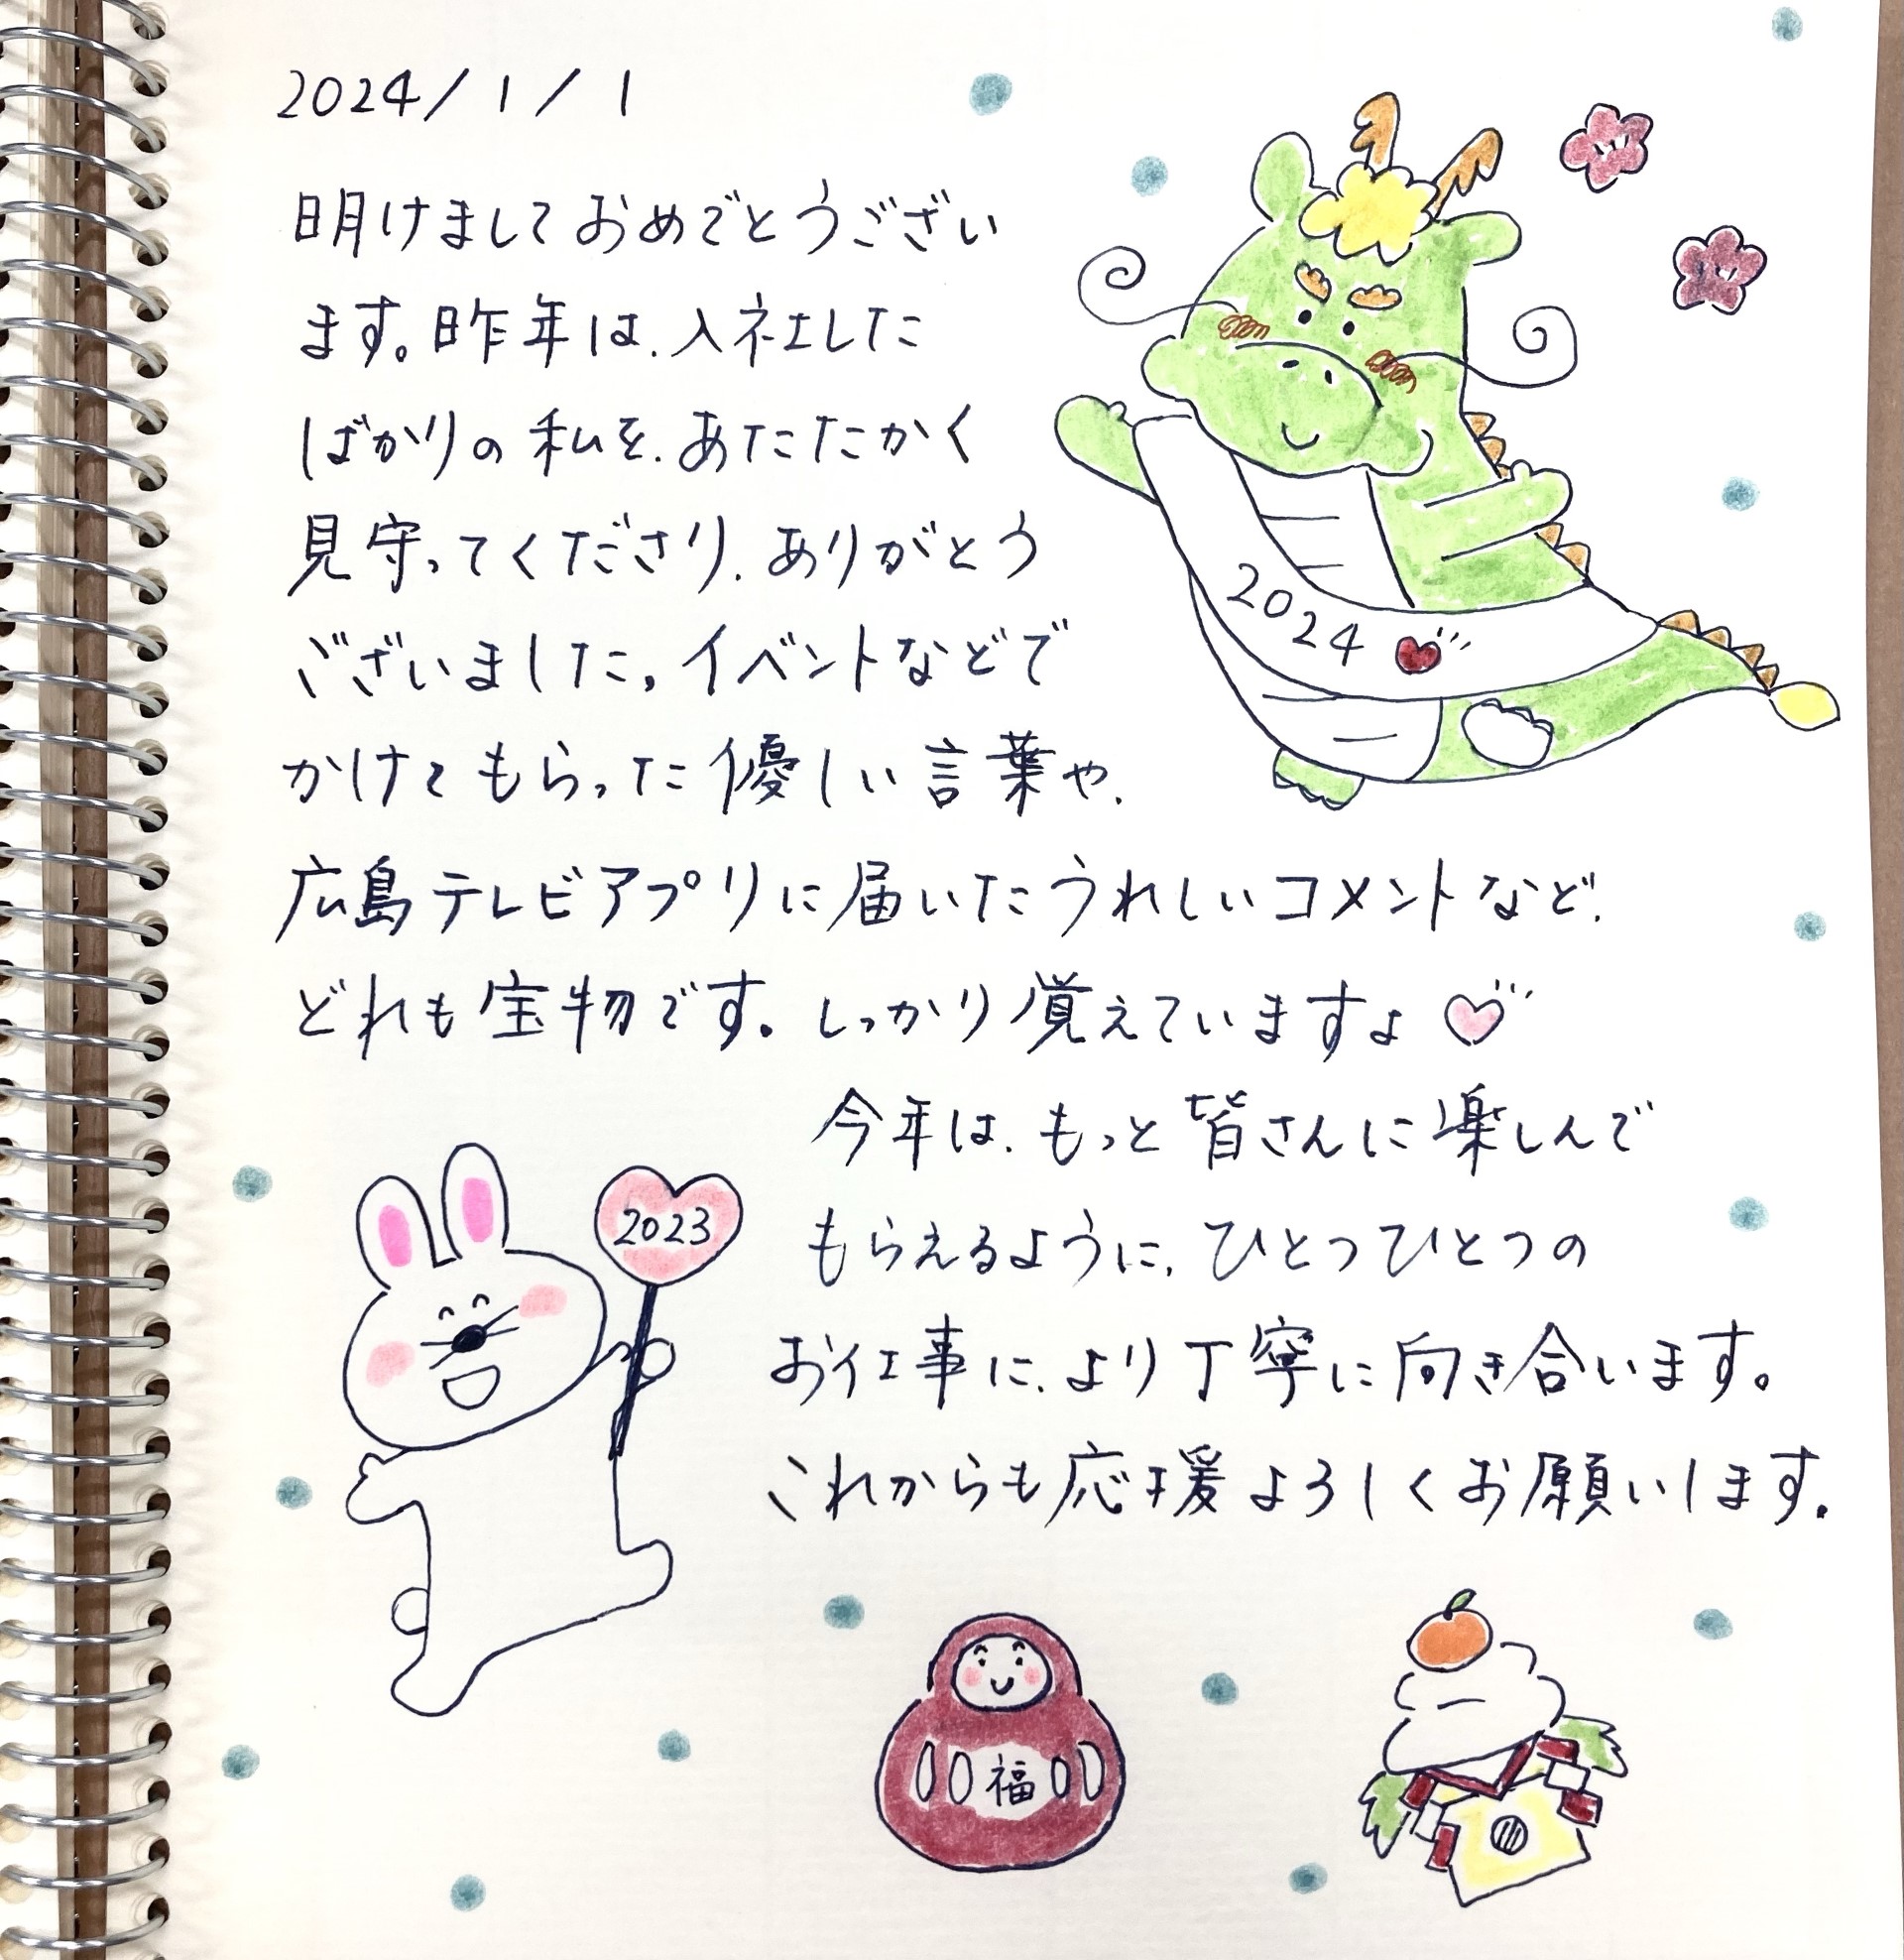 2024/1/1
明けましておめでとうござい
ます。昨年は、入社した
ばかりの私を、あたたかく
見守ってくださり、ありがとう
ございました。イベントなどで
かけてもらった優しい言葉や、
広島テレビアプリに届いたうれしいコメントなど、
どれも宝物です。しっかり覚えていますよ♡
今年は、もっと皆さんに楽しんで
もらえるように、ひとつひとつの
お仕事に、より丁寧に向き合います。
これからも応援よろしくお願いします。
2024
2023
福